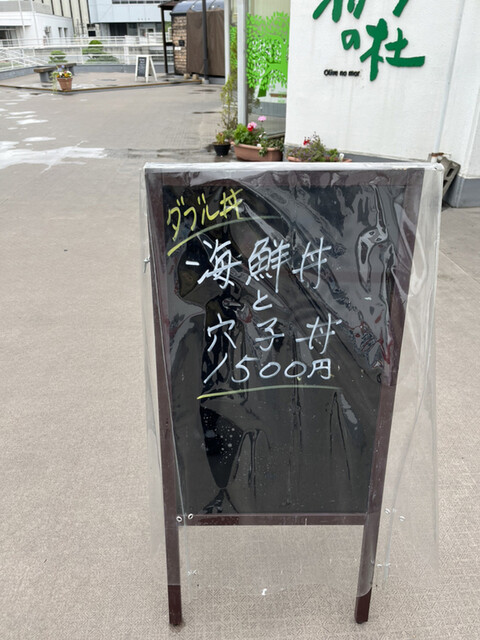 の杜
Olive no mori
ダブル丼
海鮮丼
と
穴子丼
1500円